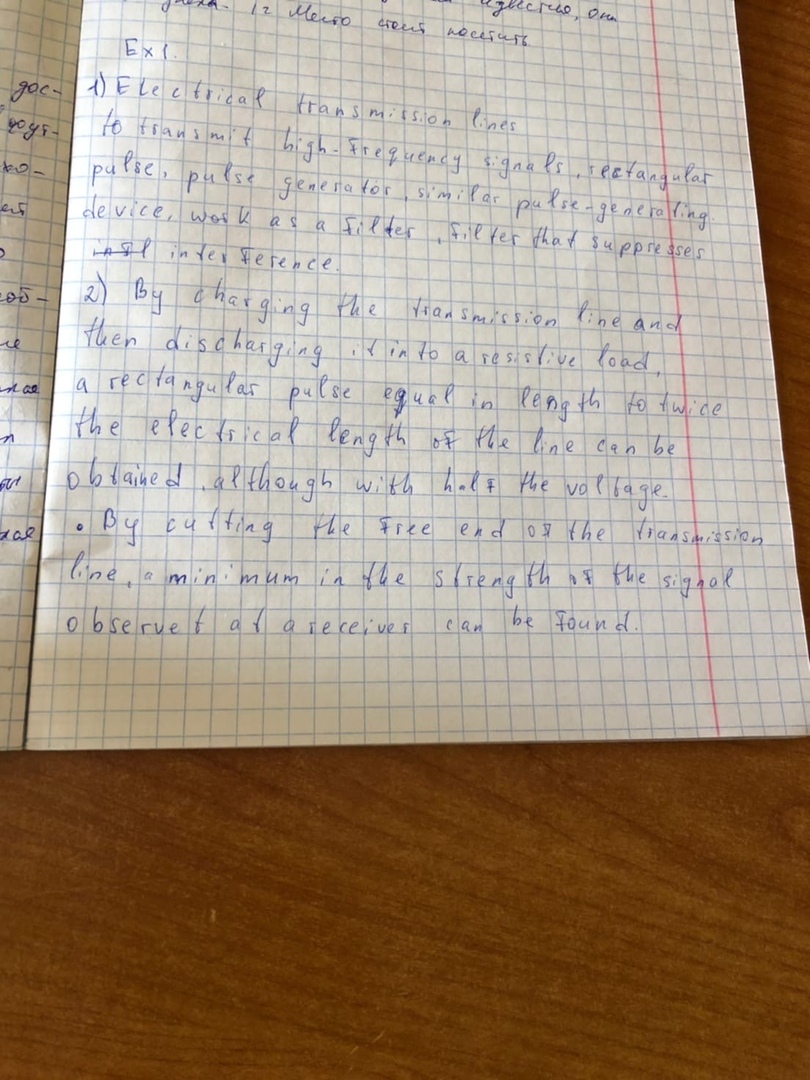 12 Место стоит посетить
известно, они
Ex 1.
1) Electrical transmission lines
to transmit high-frequency signals, rectangular
pulse, pulse generator, similar pulse-generating
device, work as a filter, filter that suppresses
interference.
2) By charging the transmission line and
then discharging it into a resistive load,
a rectangular pulse equal in length to twice
the electrical length of the line can be
obtained, although with half the voltage.
• By cutting the free end of the transmission
line, a minimum in the strength of the signal
observet at a receiver can be found.